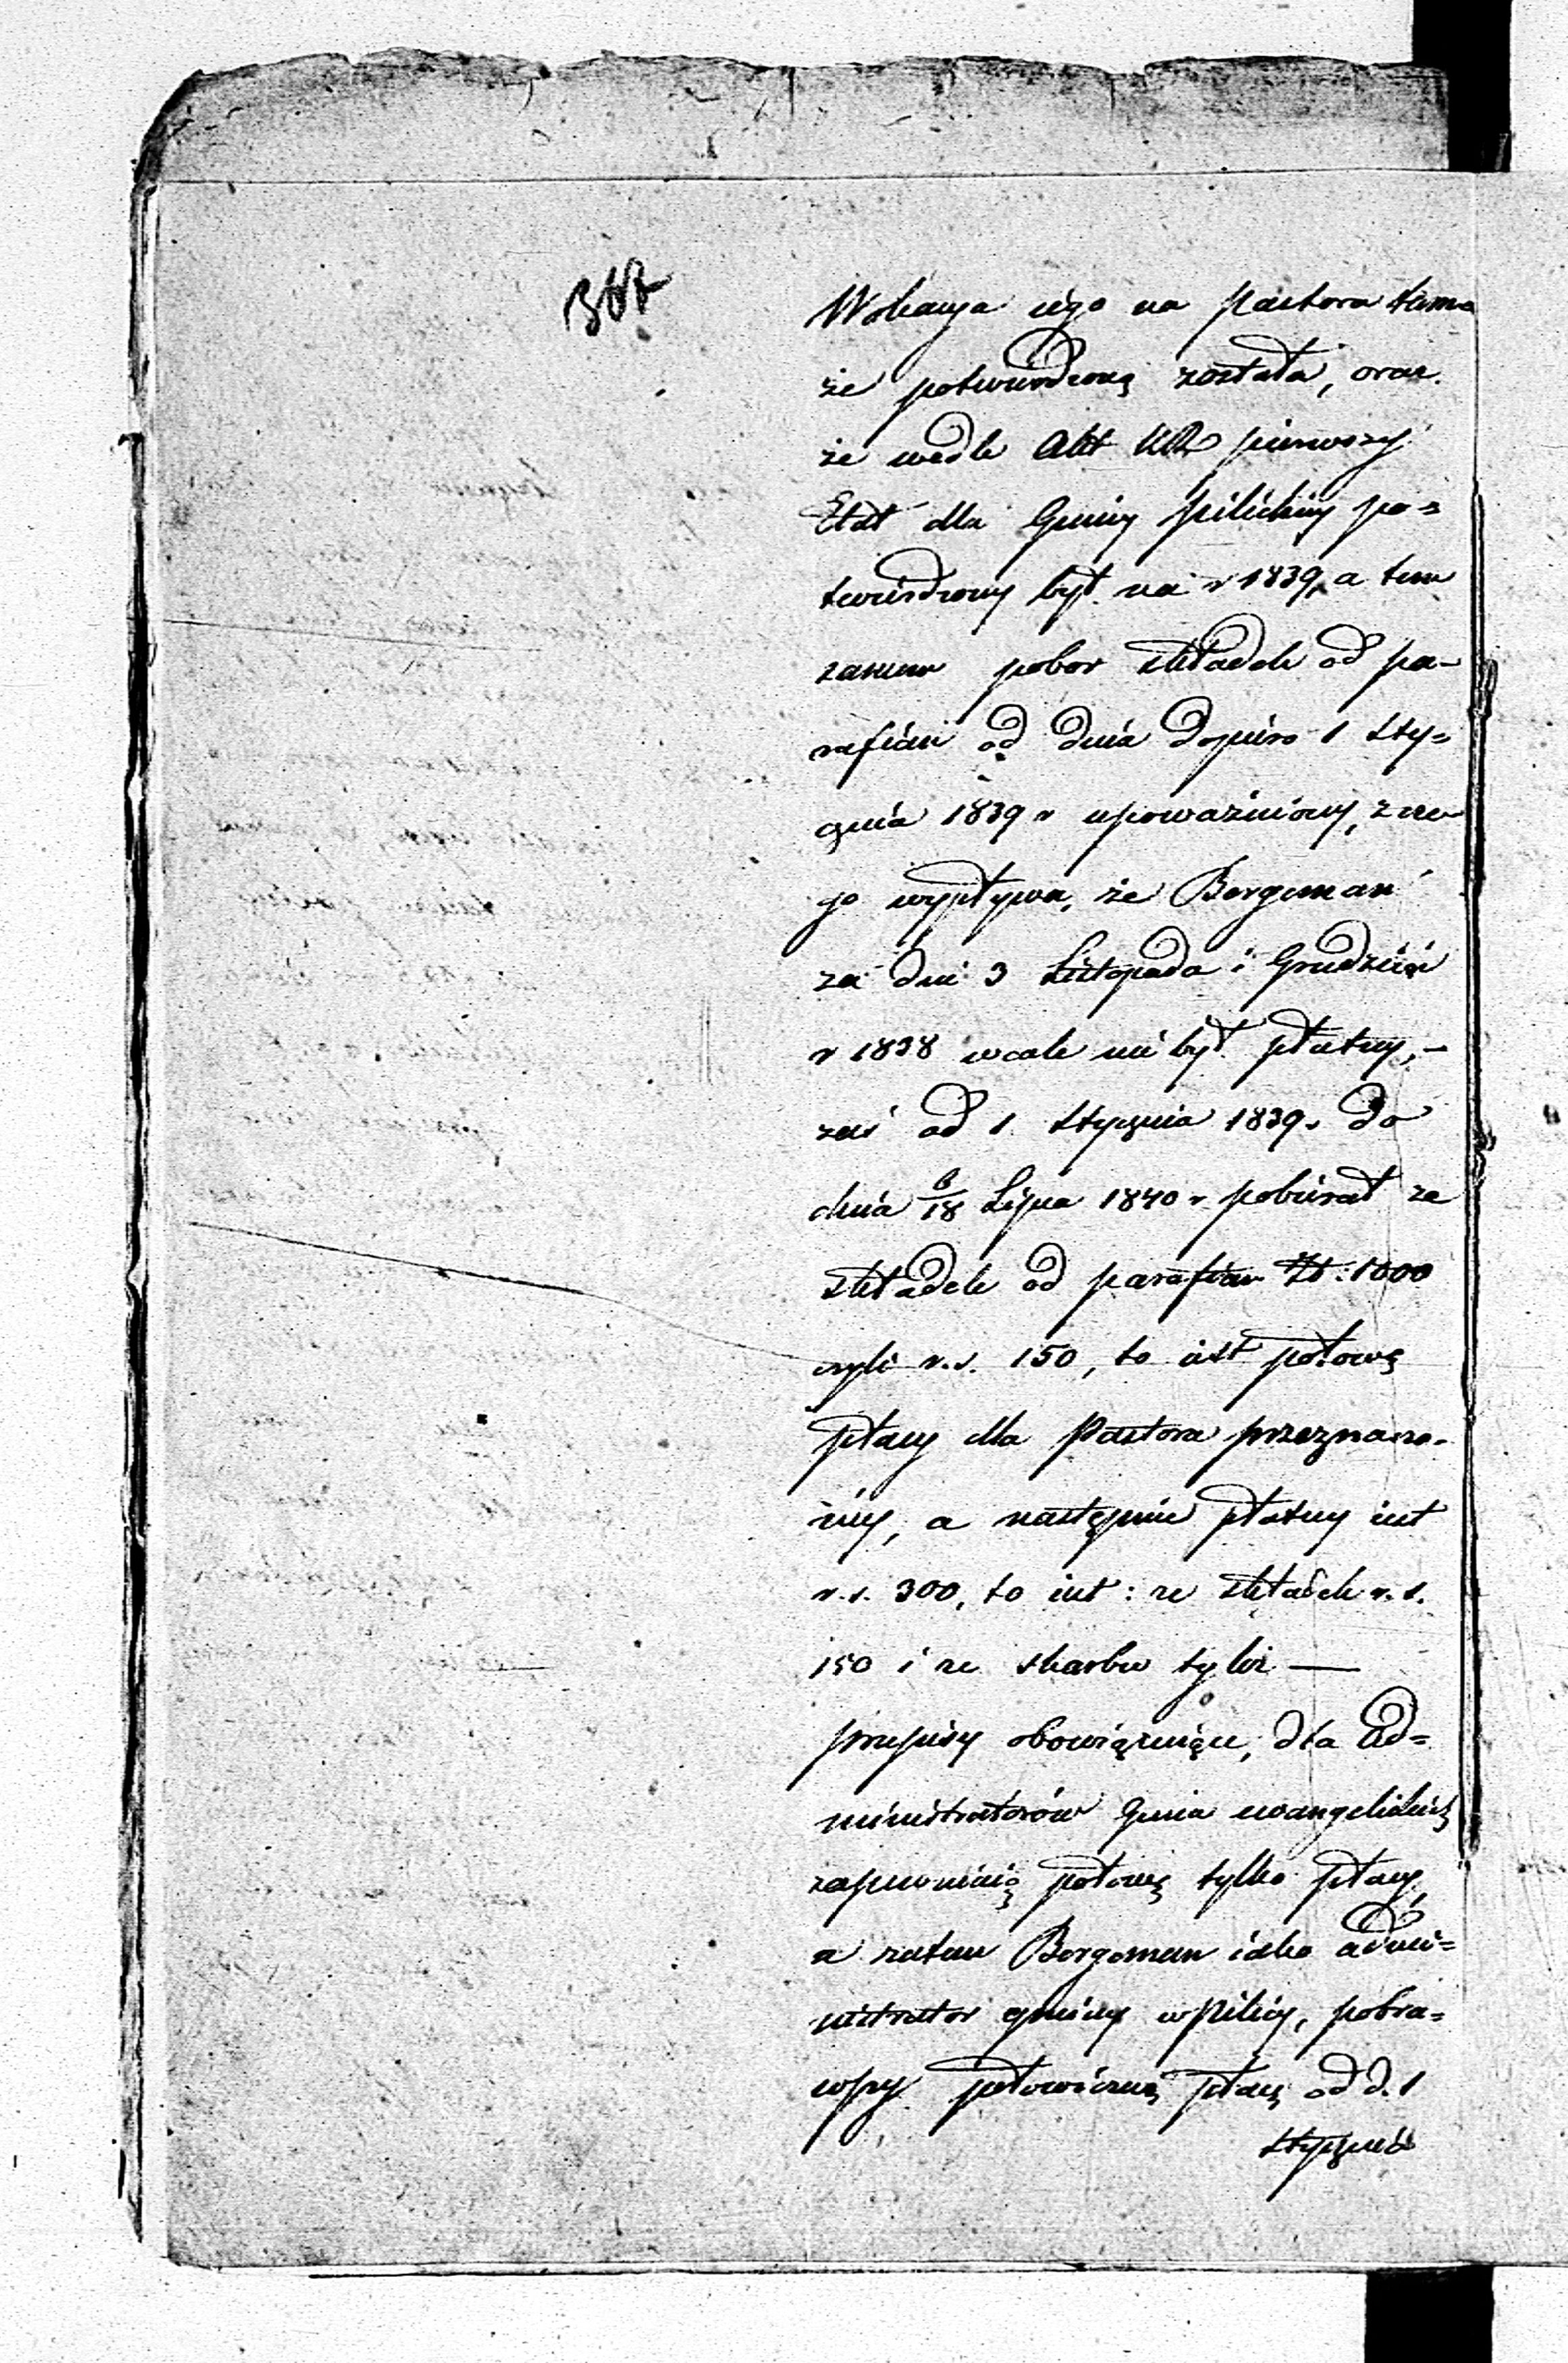 Wokacya iego na pastora tamo
że potwierdzoną została, oraz
że wedle Akt KR pierwszy
Etat dla Gminy pilickiej po=
twierdzony był na r 1839, a tem
samem pobor składek od pa-
rafian od dnia dopiero 1 sty=
cznia 1839 r upoważniony, z cze
go wypływa, że Bergeman
za dni 3 Listopada i Grudzień
r 1838 wcale nie był płatny, -
zaś od 1 stycznia 1839 r do
dnia 6/18 Lipca 1840 r pobierał ze
składek od parafian Zł: 1000
czyli r.s. 150, to iest połowę
płacy dla Pastora przeznaczo-
néy, a następnie płatny iest
r.s. 300, to iest: ze składek r.s.
150 i ze skarbu tyleż —
przepisy obowiązuiące, dla Ad=
ministratorów Gmin ewangelickich
zapewniaią połowę tylko płacy,
a zatem Bergeman iako admi=
nistrator gminy w Pilicy, pobra=
wszy połowiczną płacę od d. 1
stycznia